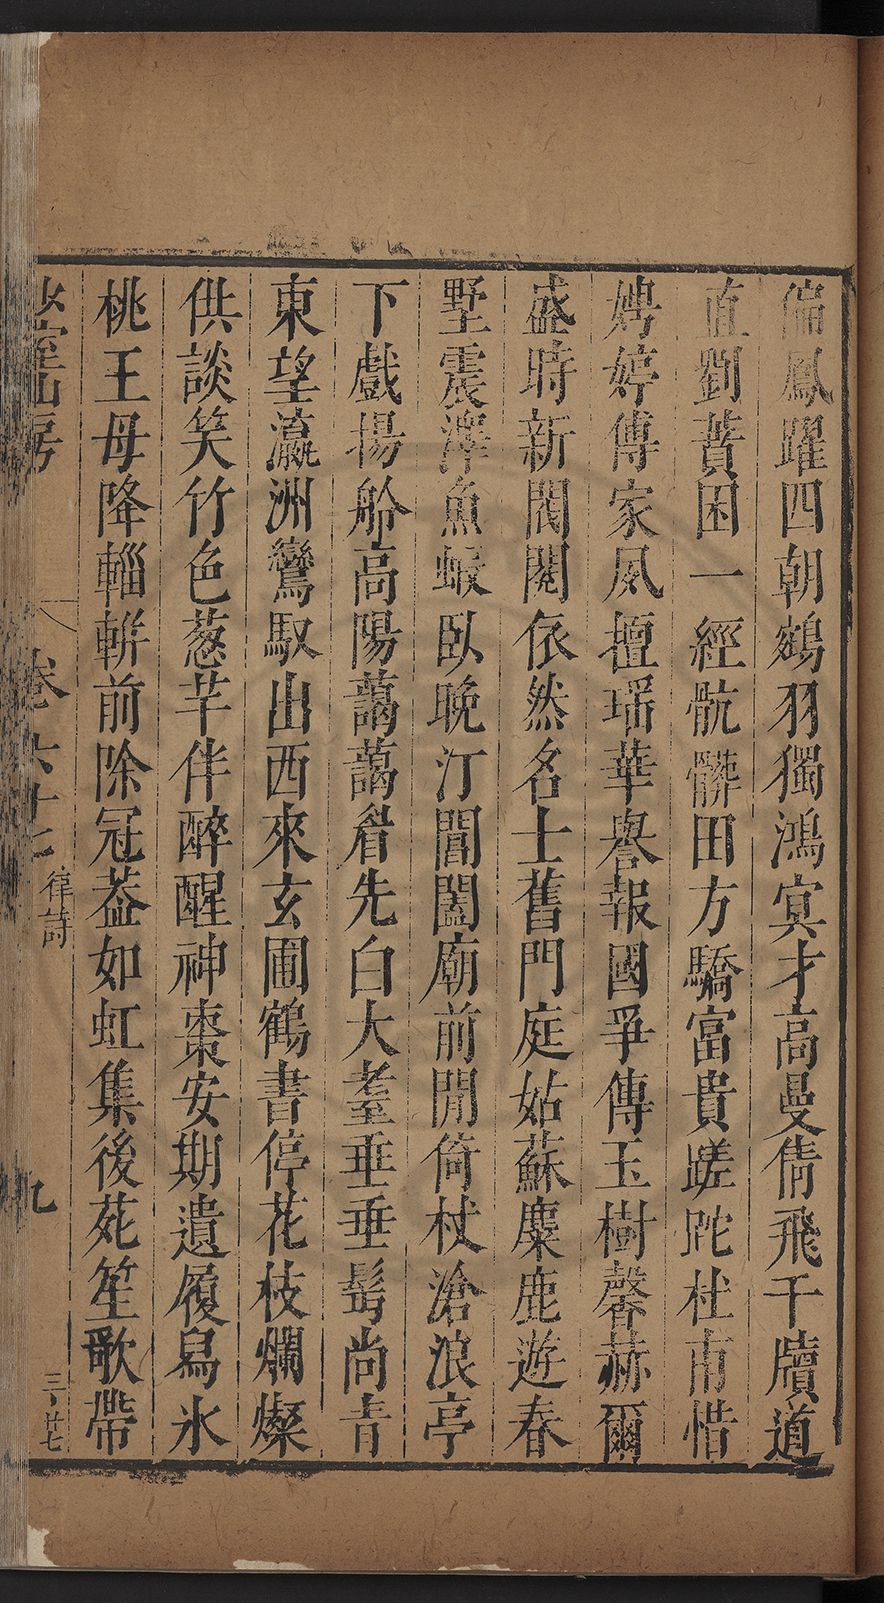 偏鳳躍四朝鵷羽獨鴻冥才高曼倩飛千牘道
直劉蕡困一經骯髒田方驕富貴蹉跎杜甫惜
娉婷傅家風擅瑤華譽報國爭傳玉樹馨赫爾
盛時新閥閱依然名士舊門庭姑蘇麋鹿遊春
墅震澤魚蝦臥晚汀閶闔廟前閒倚杖滄浪亭
下戲揚舲高陽藹藹眉先白大耋垂垂髩尚青
東望瀛洲鸞馭出西來玄圃鶴書停花枝爛燦
供談笑竹色葱芊伴醉醒神棗安期遺履舄氷
桃王母降輜軿前除冠葢如虹集後苑笙歌帶
少室山房
卷六十七
律詩
九
三卅七